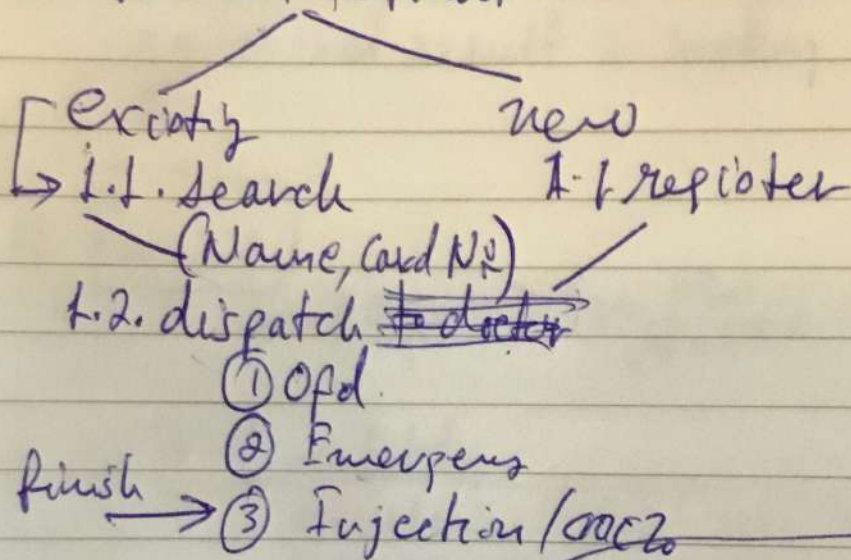 existing new
1.1. search 1.1 register
(Name, Card No)
1.2. dispatch to doctor
① Opd.
② Emergency
finish → ③ Injection /